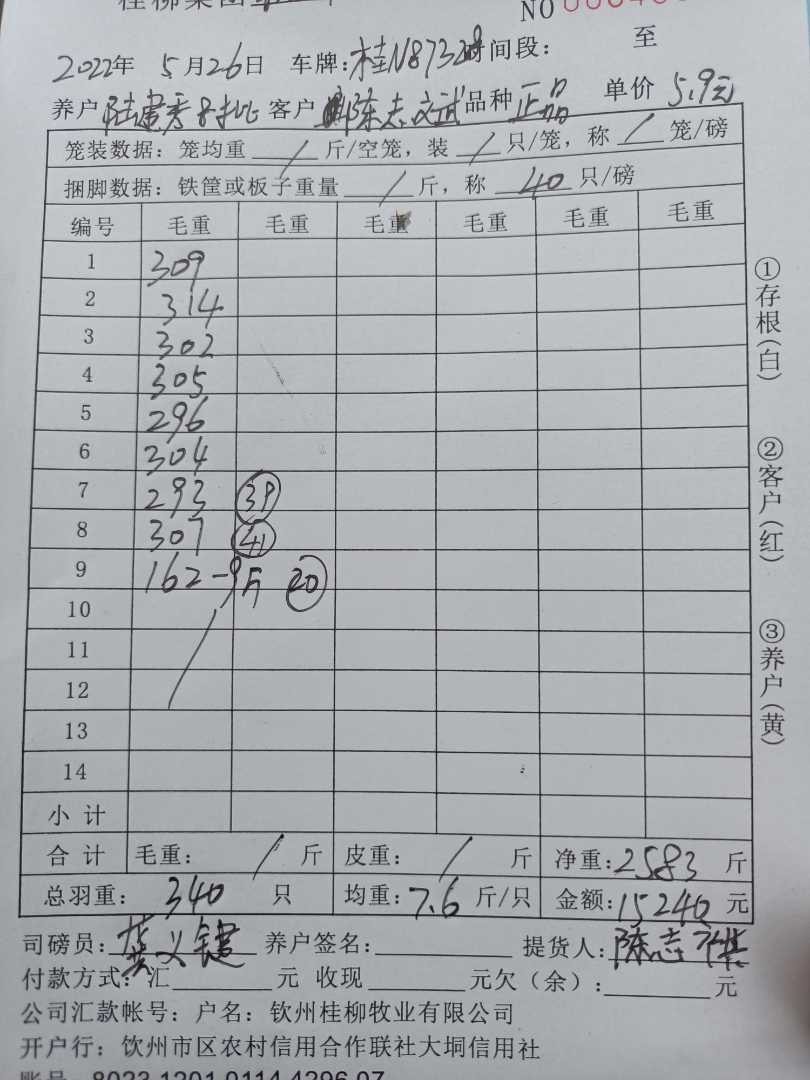 桂柳集团
NO
2022年 5月26日 车牌:桂N87328 时间段: 至
养户 陆建 客户 陈志武 品种 正品 单价 5.9元
笼装数据: 笼均重 / 斤/空笼, 装 / 只/笼, 称 / 笼/磅
捆脚数据: 铁筐或板子重量 / 斤, 称 40 只/磅
编号 毛重 毛重 毛重 毛重 毛重 毛重
1 309
2 314
3 302
4 305
5 296
6 304
7 293 39
8 307 41
9 162-9斤 20
10
11
12
13
14
小计
合计 毛重: / 斤 皮重: / 斤 净重:2583 斤
总羽重: 340 只 均重:7.6 斤/只 金额:15240 元
司磅员: 义键 养户签名: 提货人: 陈志
付款方式: 汇 元 收现 元欠(余): 元
公司汇款帐号: 户名: 钦州桂柳牧业有限公司
开户行: 钦州市区农村信用合作联社大垌信用社
账号: 8023 1201 0114 4296 07
①存根(白)
②客户(红)
③养户(黄)